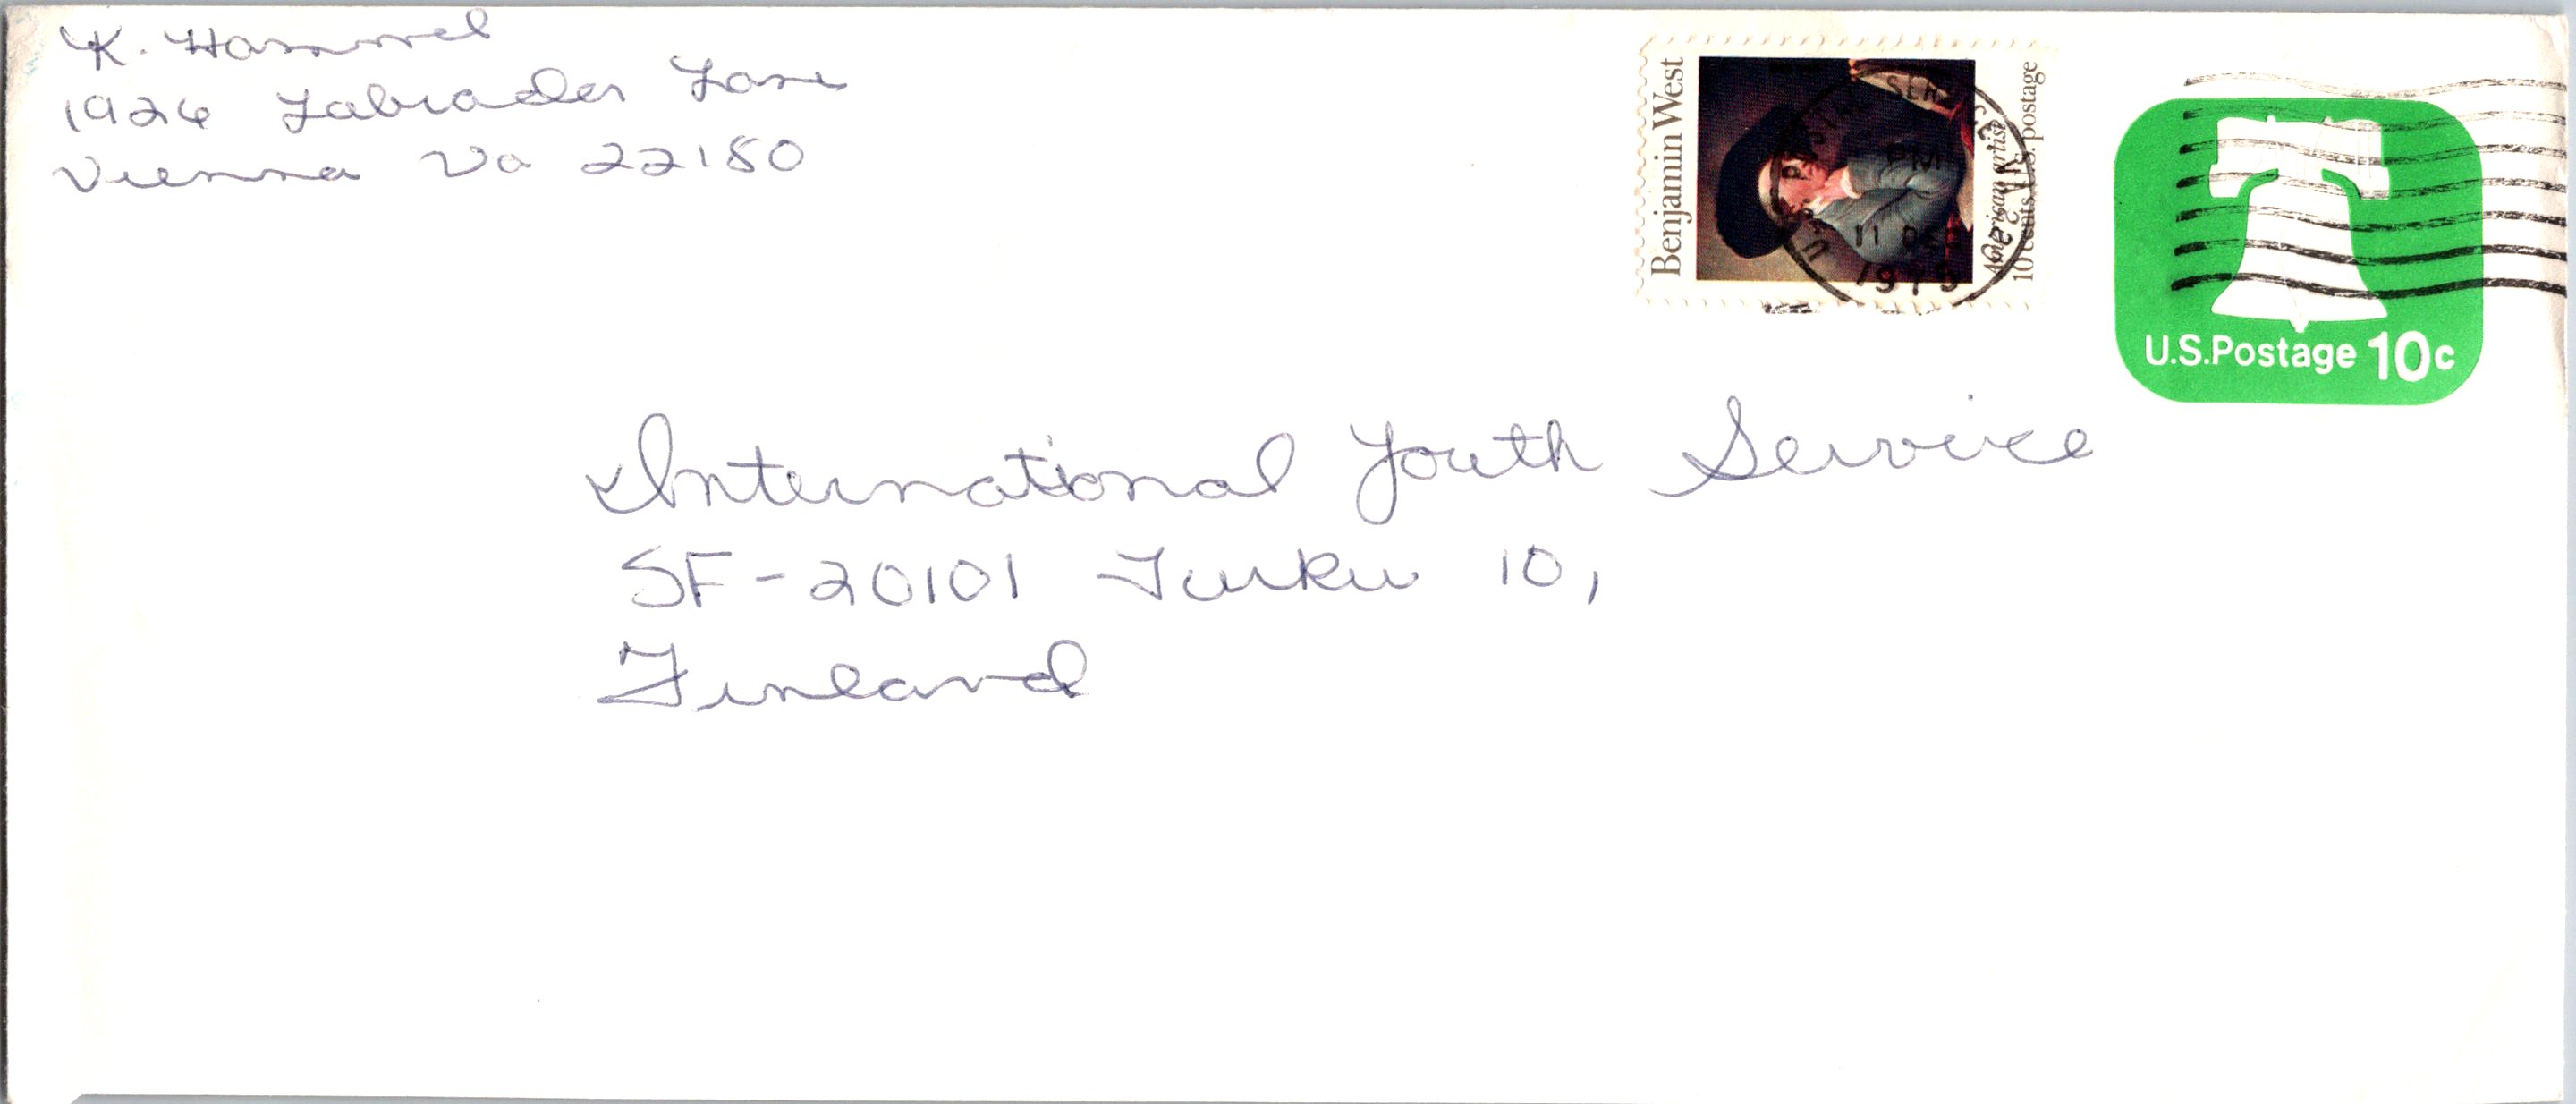 K. Hammel
1926 Labrador Lane
Vienna Va 22180
Benjamin West
American artist
10 cents U.S. postage
U.S. POSTAL SERVICE VA
PM
11 DEC
1975
U.S.Postage 10c
International Youth Service
SF-20101 Turku 10,
Finland